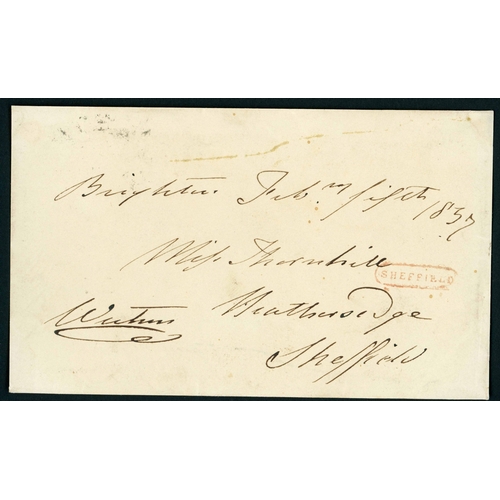 Brighton Feb.ry fifth 1837
Miss Thornhill
SHEFFIELD
Heathersedge
Sheffield